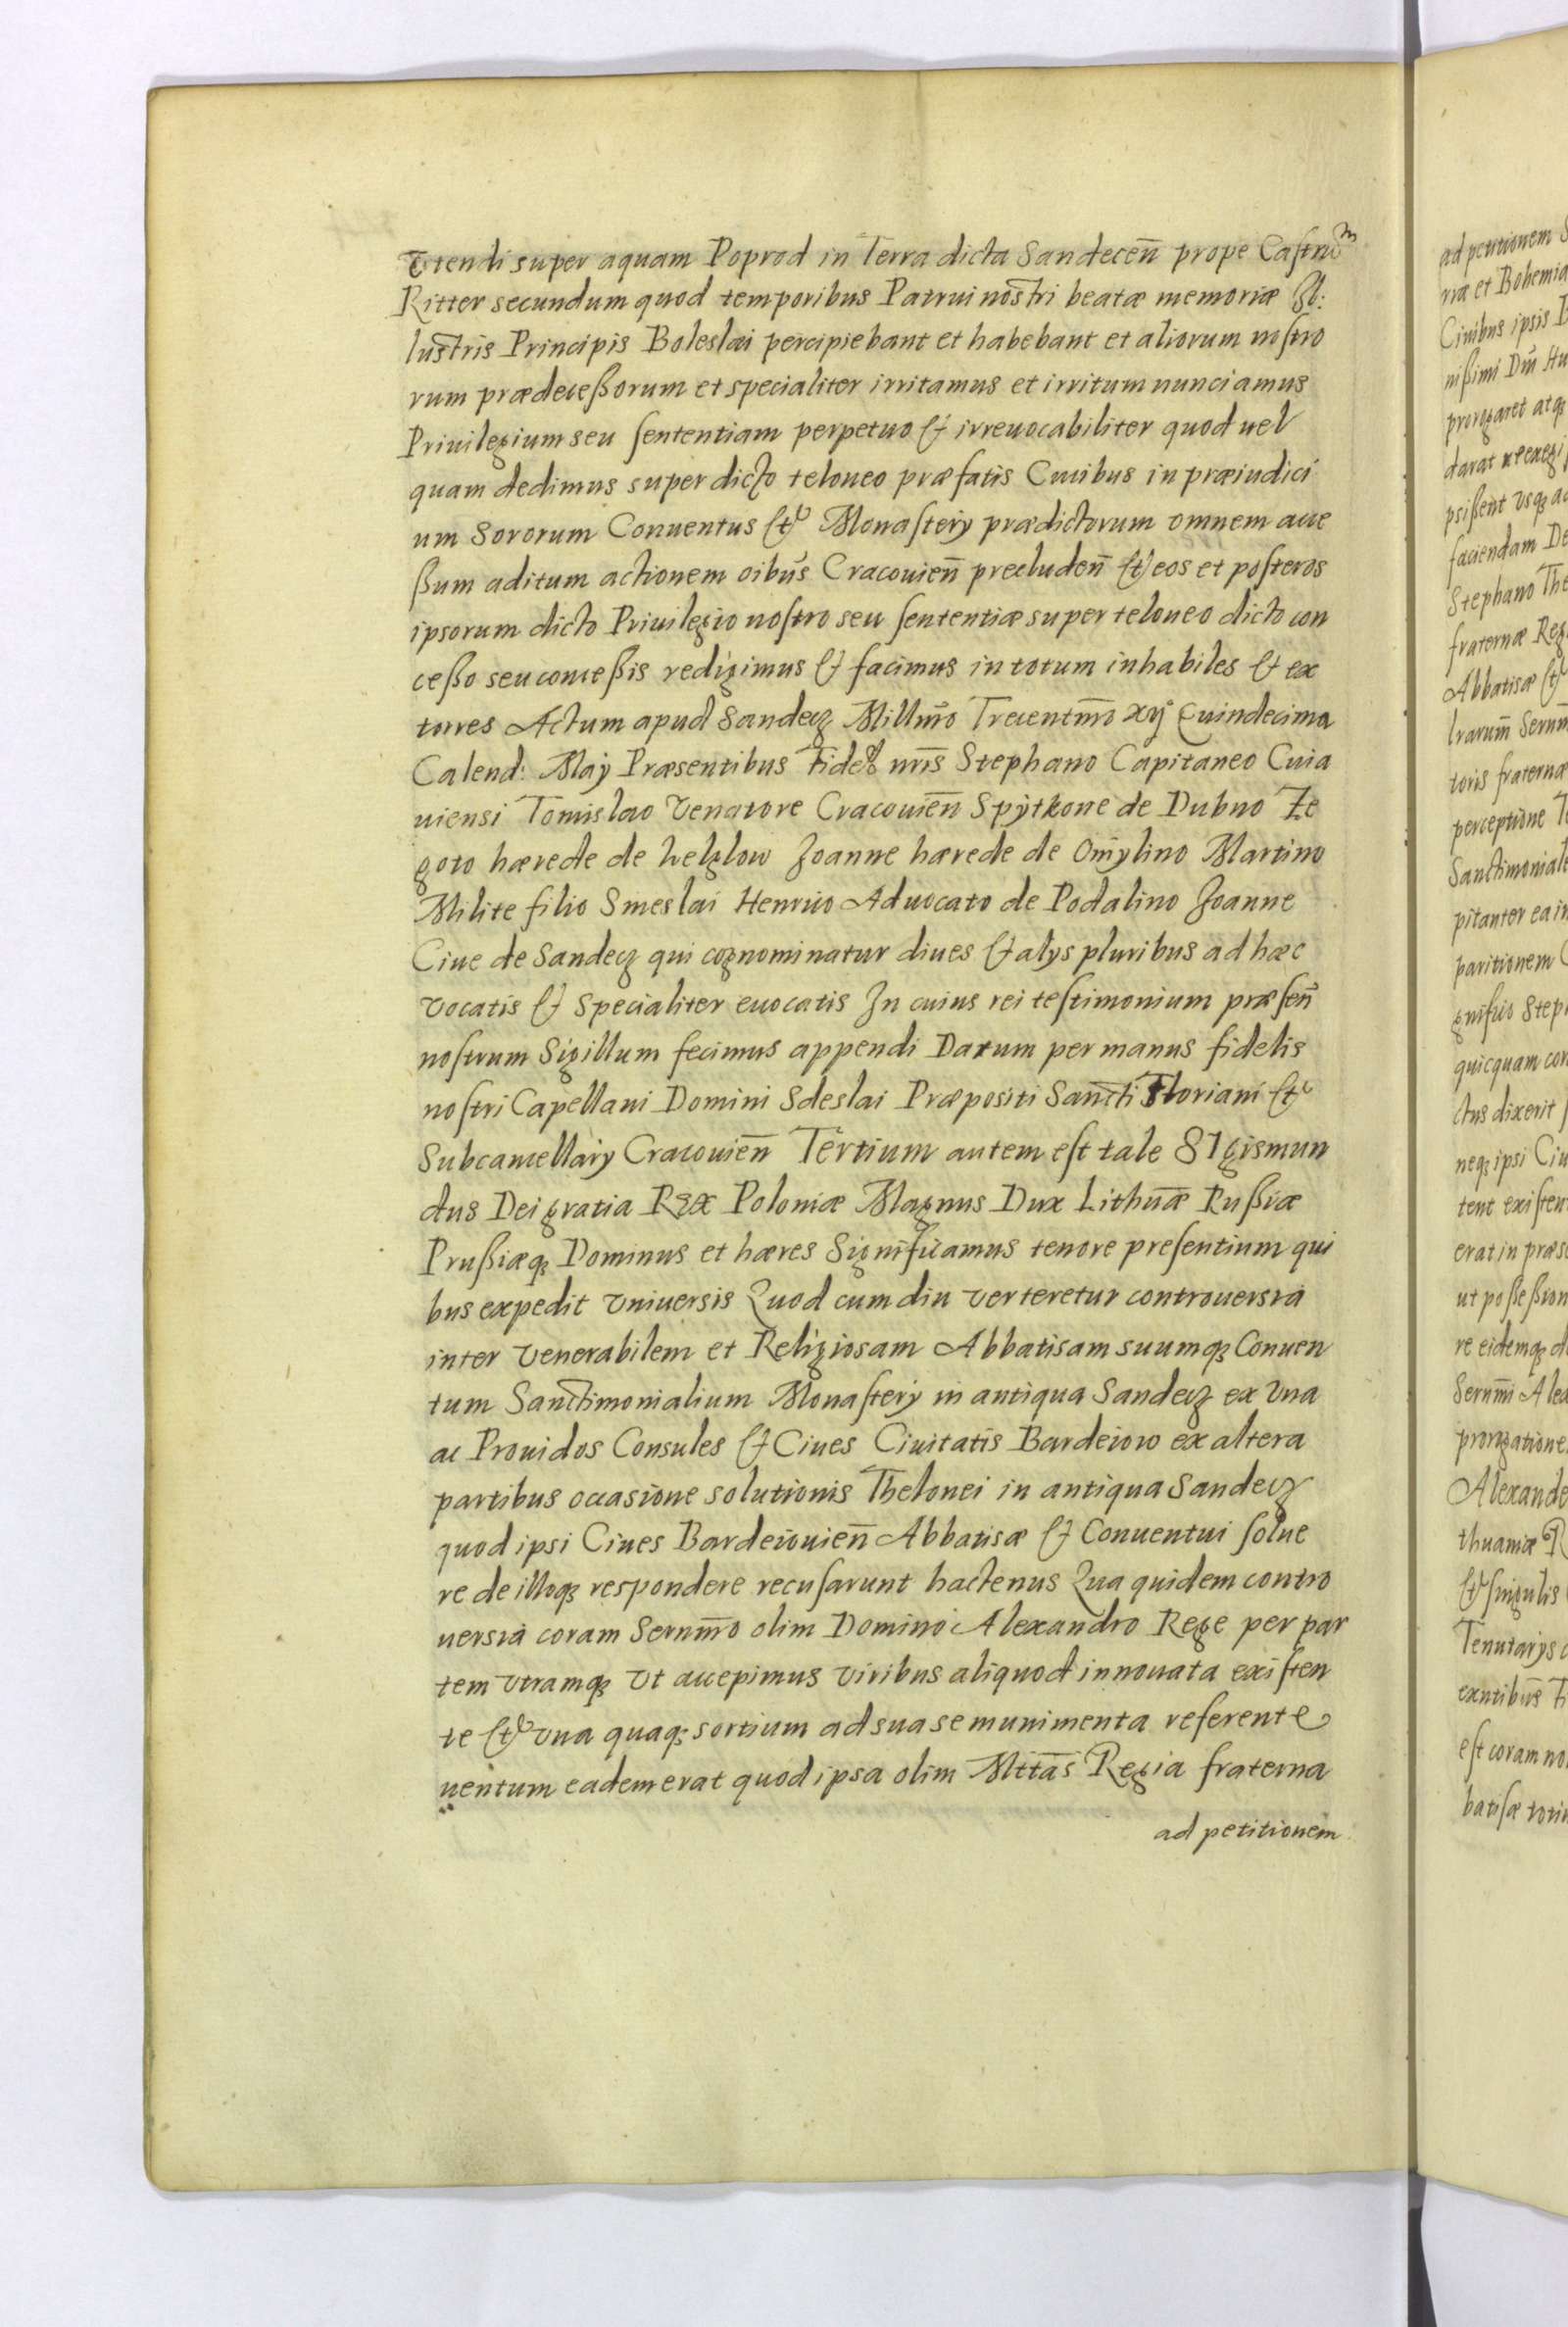 Utendi super aquam Poprod in Terra dicta Sandeceñ prope Castrũm
Ritter secundum quod temporibus Patrui nostri beatæ memoriæ Il:
lustris Principis Boleslai percipiebant et habebant et aliorum nostro
rum prædeceßorum et specialiter irritamus et irritum nunciamus
Priuilegium seu sententiam perpetuo & irreuocabiliter quod uel
quam dedimus super dicto teloneo præfatis Ciuibus in præiudici
um Sororum Conuentus et Monasterÿ prædictorum omnem acce
ßum aditum actionem oibũs Cracouieñ precludeñ et eos et posteros
ipsorum dicto Priuilegio nostro seu sententiæ super teloneo dicto con
ceßo seu conceßis redigimus & facimus in totum inhabiles & ex
torres Actum apud Sandecz Millm̃o Trecentm̃o xijº Quindecima
Calend: Maÿ Præsentibus Fidel nr̃is Stephano Capitaneo Cuia
uiensi Tomislao Venatore Cracouieñ Spÿtkone de Dubno Ze
goto hærede de Joanne hærede de Martino
Milite filio Smeslai Henrico Aduocato de Podalino Joanne
Ciue de Sandecz qui cognominatur diues & alijs pluribus ad hæc
vocatis & Specialiter euocatis In cuius rei testimonium præseñ
nostrum Sigillum fecimus appendi Datum per manus fidelis
nostri Capellani Domini Sdeslai Præpositi Sancti Floriani et
Subcancellarÿ Cracouieñ Tertium autem est tale SIgismun
dus Dei gratia Rex Poloniæ Magnus Dux Lithuãæ Rußiæ
Prußiæq3 Dominus et hæres Significamus tenore presentium qui
bus expedit Vniuersis Quod cum diu verteretur controuersia
inter Venerabilem et Religiosam Abbatisam suumq3 Conuen
tum Sanctimonialium Monasterÿ in antiqua Sandecz ex Vna
ac Prouidos Consules & Ciues Ciuitatis Bardeiow ex altera
partibus occasione solutionis Thelonei in antiqua Sandecz
quod ipsi Ciues Bardeiouieñ Abbatisæ & Conuentui solue
re de illoq3 respondere recusarunt hactenus Qua quidem contro
uersia coram Serenm̃o olim Domino Alexandro Rege per par
tem vtramq3 Vt accepimus viribus aliquod innouata existen
te et vna quaq3 sortium ad sua se munimenta referente
uentum eadem erat quod ipsa olim Mttãs Regia fraterna
ad petitionem